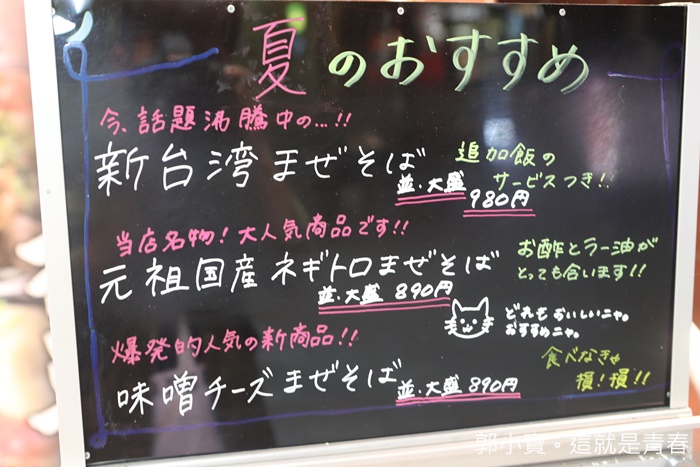 夏のおすすめ
今、話題沸騰中の...!!
新台湾まぜそば
追加飯の
サービスつき!!
並・大盛 980円
当店名物!大人気商品です!!
元祖国産ネギトロまぜそば
お酢とラー油が
とっても合います!!
並・大盛 890円
どれもおいしいニャ。
おすすめニャ。
爆発的人気の新商品!!
味噌チーズまぜそば
並・大盛 890円
食べなきゃ
損!損!!
郭小寶。這就是青春